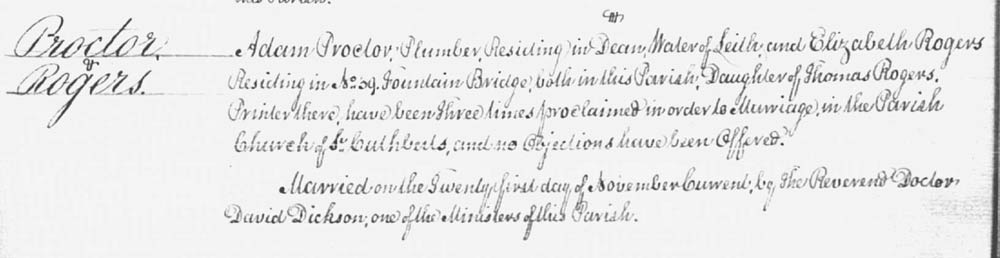 this Parish.
Proctor
&
Rogers.
Adam Proctor, Plumber, Residing in Dean, Water of Leith, and Elizabeth Rogers
Residing in No. 39, Fountain Bridge, both in this Parish, Daughter of Thomas Rogers,
Printer there, have been three times proclaimed in order to Marriage, in the Parish
Church of St. Cuthberts, and no Objections have been Offered.
Married on the Twenty first day of November Current, by the Reverend Doctor
David Dickson, one of the Ministers of this Parish.